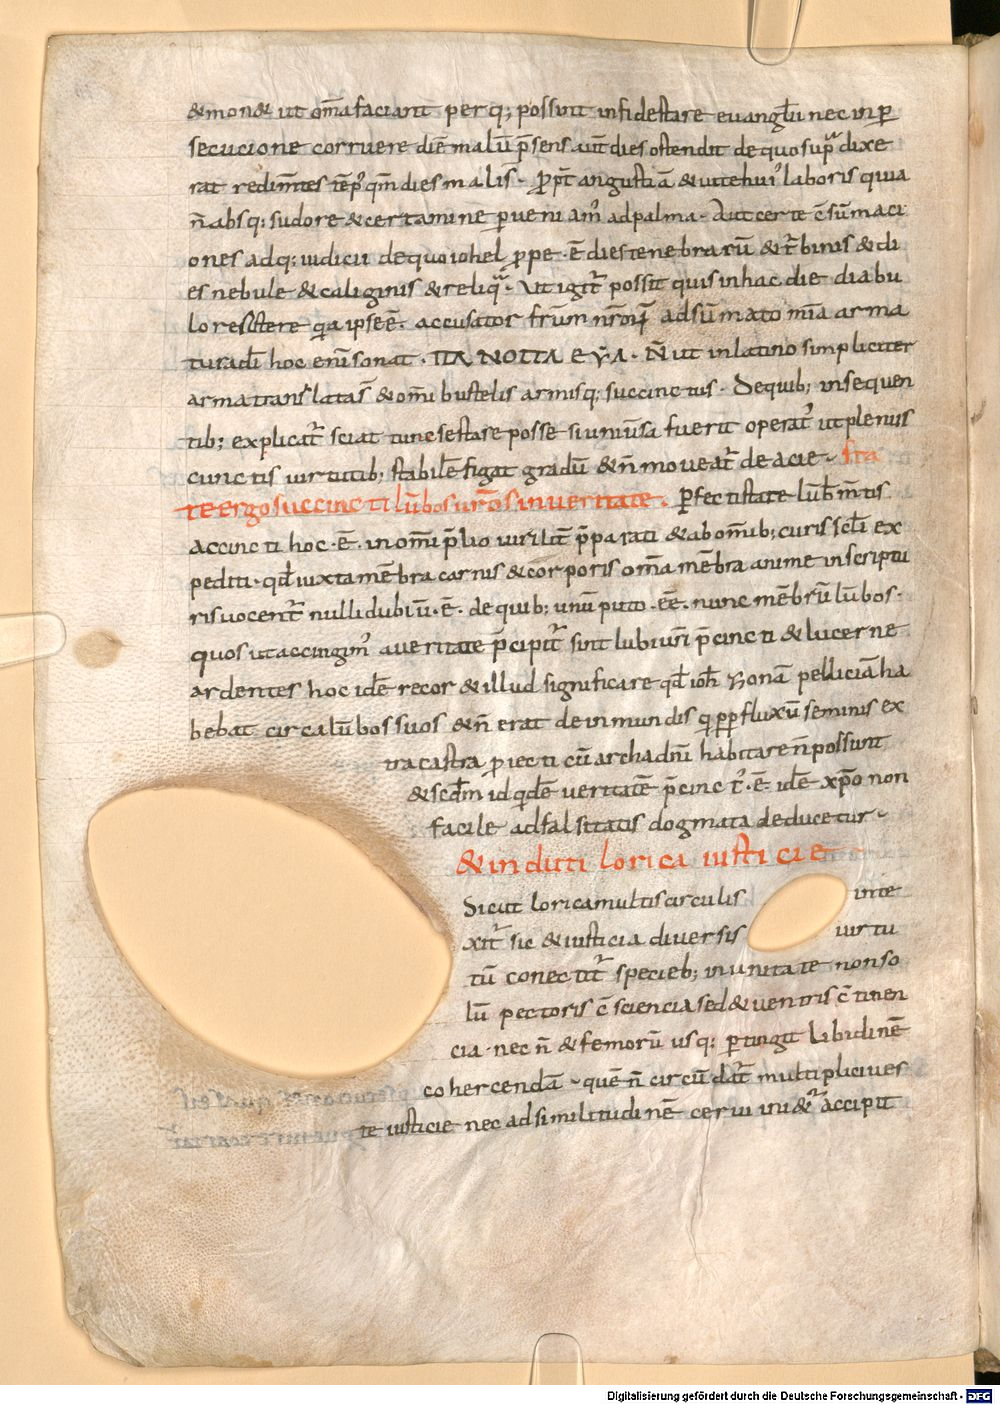 &mon& ut om̅a faciant per q; possint in fide stare euangl̅iu nec in p̲
secucione corruere die̅ malu̅ p̅sens aut̅ dies ostendit de quo sup̅a dixe
rat redim̅tes te̅p' qm̅ dies mali s̅. p̲p̅t angustia̅ & uite hui' laboris quia
n̅ absq; sudore & certamine p̲ueniam' ad palma. Aut certe c̅su̅maci
ones adq; iudicii de quo iohel p̲pe .e̅ dies tenebraru̅ & t̅binis & di
es nebule & caliginis & reliq̅. Ut igit̅ possit quis in hac die diabu
lo resistere qia ipse e̅. accusator fr̅um nr̅orum adsu̅mat om̅ia arma
tura di̅ hoc eni̅ sonat . ΠΑΝΟΠΛΕΥΑ . N̅ ut in latino simpliciter
arma translata s̅ & om̅ibus telis armisq; succinctus. De quib; in sequen
tib; explicat̅ sciat tunc se stare posse si uniu̅sa fuerit operat' ut plenus
cunctis uirtutib; stabile̅ figat gradu̅ & n̅ moueat̅ de acie. Sta
te ergo succincti lu̅bos uro̅s in ueritate. P̲fectis tate lu̅b m̅tis
accincti hoc .e̅. in om̅i p̅lio uirilit̅ p̅parati & ab om̅ib; curis scl̅i ex
pediti. qd̅ iuxta me̅bra carnis & corporis om̅a me̅bra anime in scriptu
ris uocent̅ nulli dubiu̅ .e̅. de quib; unu̅ puto .e̅e̅. nunc me̅bru̅ lu̅bos.
quos ut accingim' a ueritate p̅cipit̅ sint lubi ur̅i p̅cincti & lucerne
ardentes hoc ide̅ recor & illud significare qd̅ ioh̅ zona̅ pellicia̅ ha
bebat circa lu̅bos suos & n̅ erat de inmundis qi p̲p̲ fluxu̅ seminis ex
tra castra p̲iecti cu̅ archa dn̅i habitare n̅ possunt
& scd̅m id qide̅ ueritate̅ p̅cinct' .e̅. ide̅ xp̅o non
facile ad falsitatis dogmata deducetur.
& induti lorica iusticie
Sicut lorica multis circulis inte
xit̅ sic & iusticia diuersis uirtu
tu̅ conectit̅ specieb; in unitate non so
lu̅ pectoris c̅sciencia sed & uentris c̅tinen
cia. nec n̅ & femoru̅ usq; p̲tingit libidine̅
cohercenda̅. que̅ n̅ circu̅dat̅ multiplici ues
te iusticie nec ad similitudine̅ cerui ini&̅ accipit
Digitalisierung gefördert durch die Deutsche Forschungsgemeinschaft - DFG